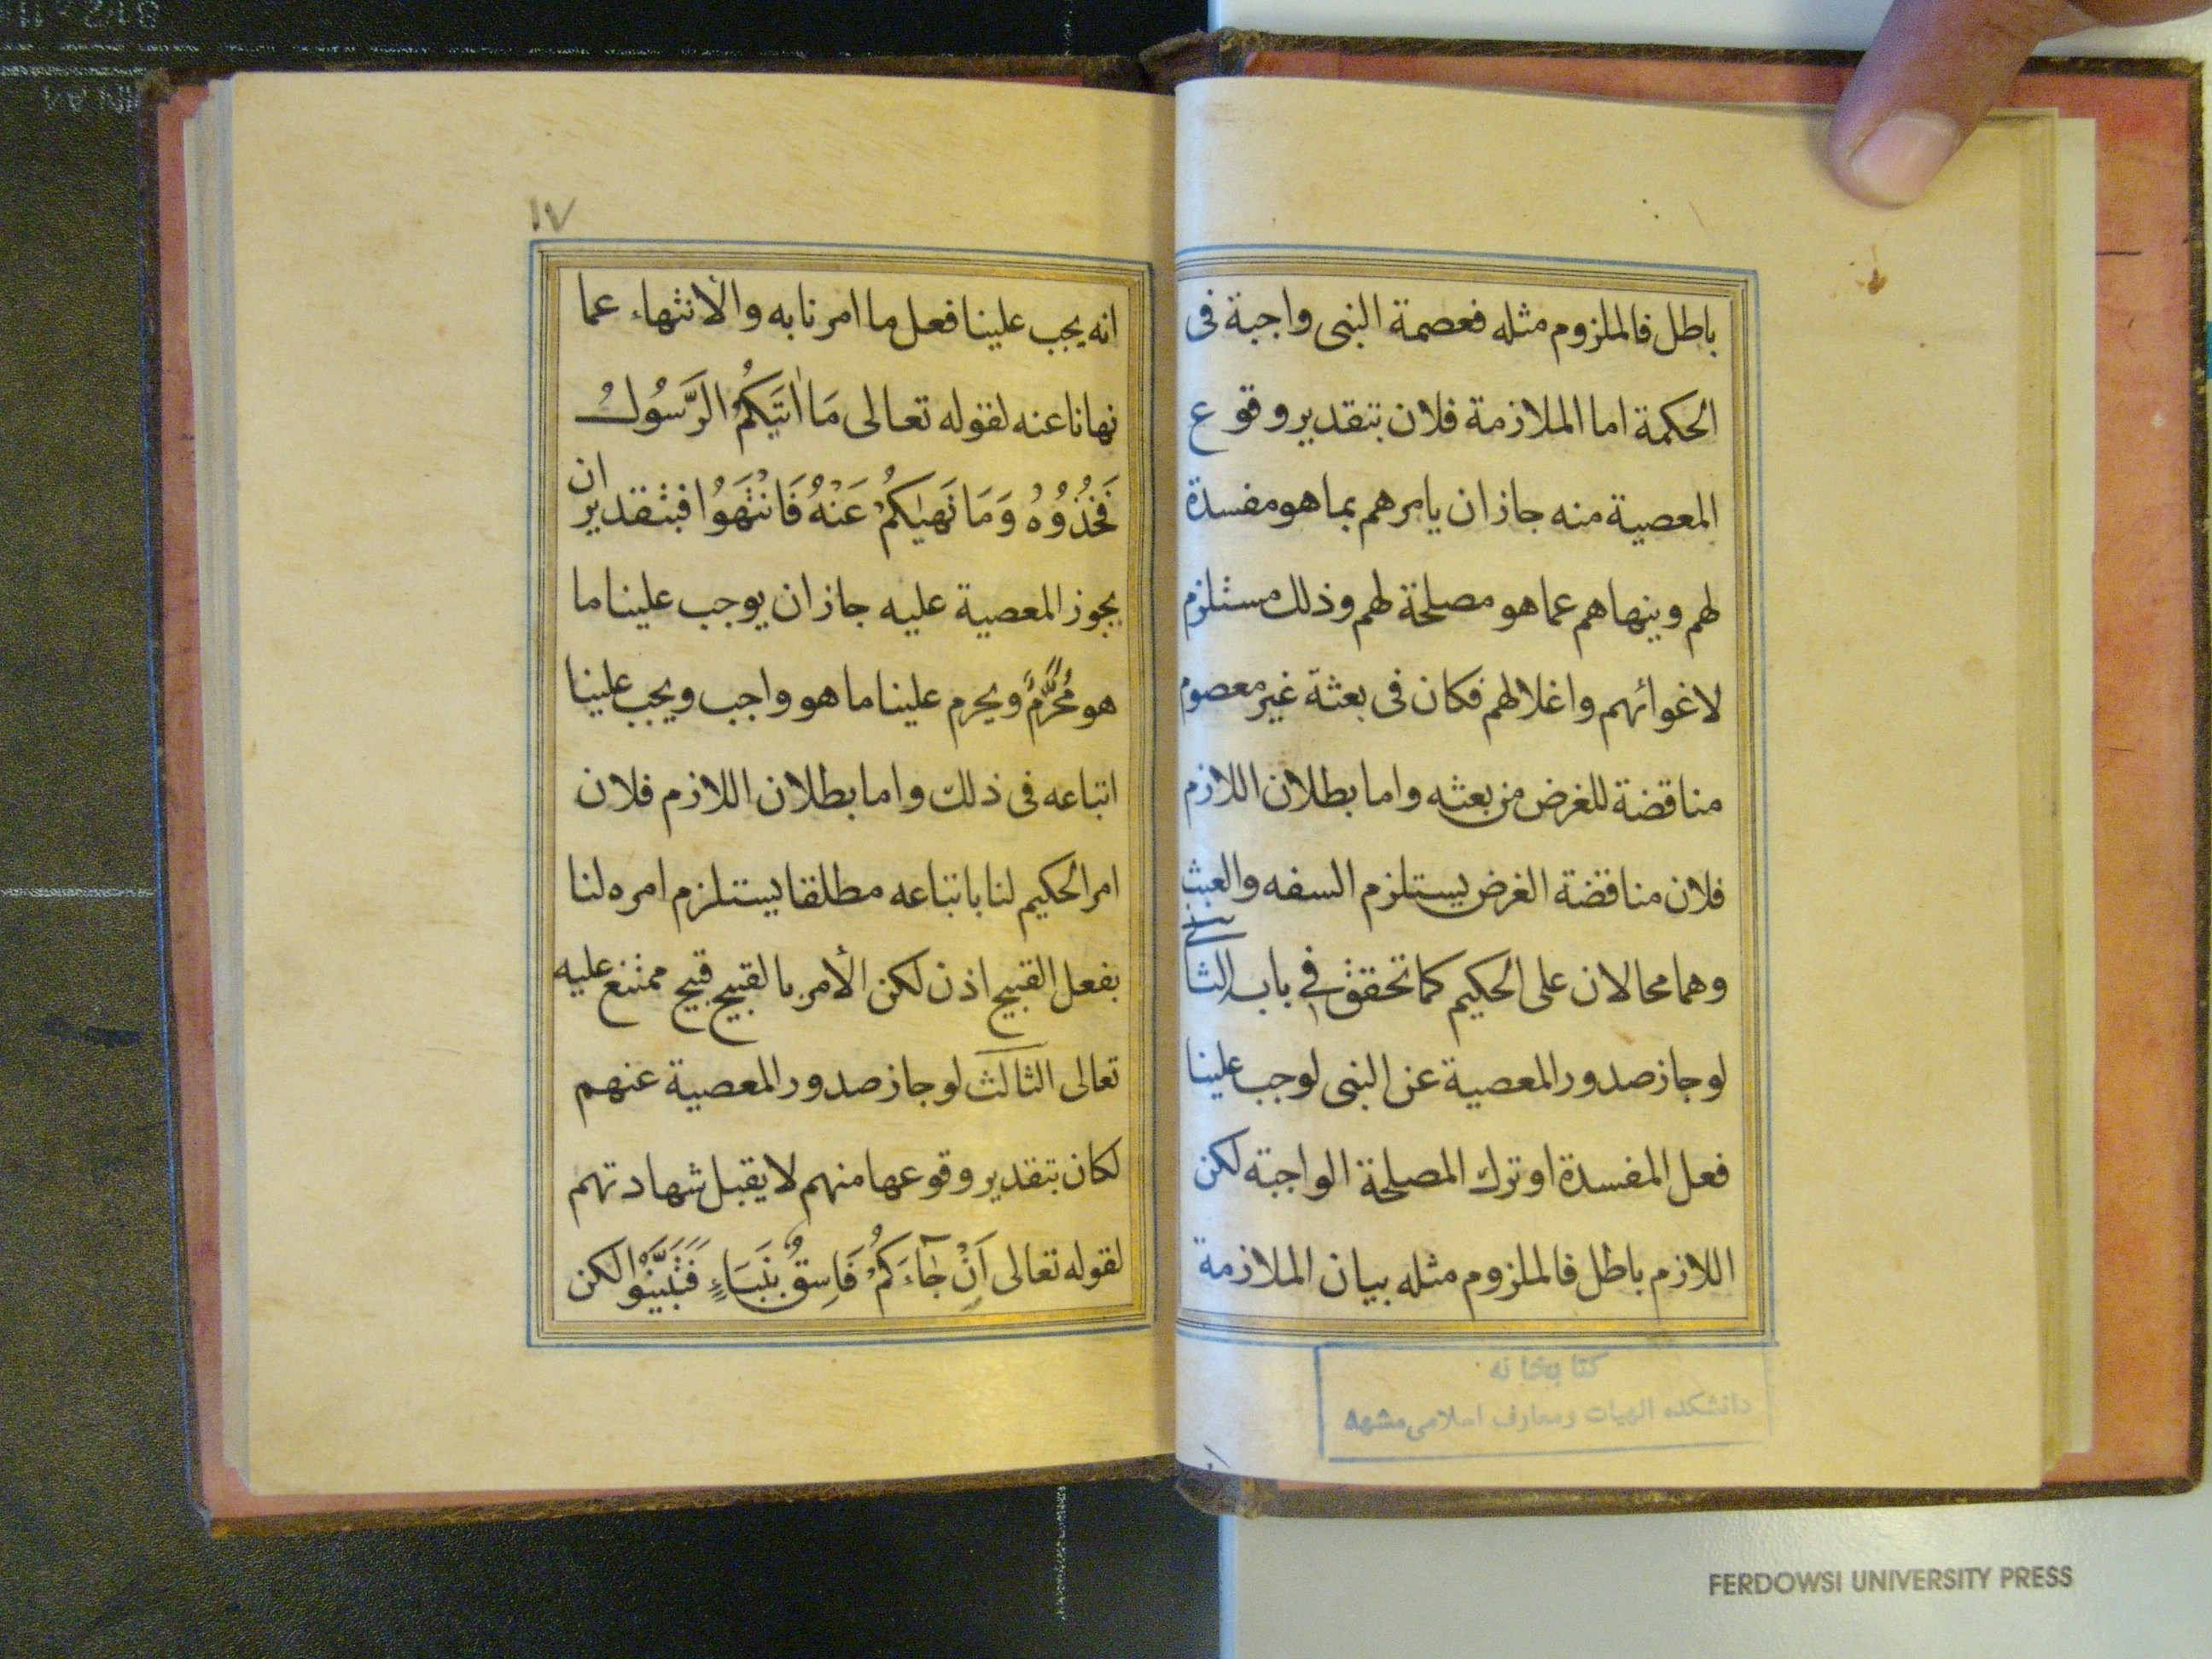 باطل فالملزوم مثله فعصمة النبى واجبة فى
الحكمة اما الملازمة فلان بتقدير وقوع
المعصية منه جاز ان يامرهم بما هو مفسدة
لهم وينهاهم عما هو مصلحة لهم وذلك مستلزم
لاغوائهم واغلالهم فكان فى بعثة غير معصوم
مناقضة للغرض من بعثه واما بطلان اللازم
فلان مناقضة الغرض يستلزم السفه والعبث
وهما محالان على الحكيم كما تحقق فى باب الثانى
لو جاز صدور المعصية عن النبى لوجب علينا
فعل المفسدة او ترك المصلحة الواجبة لكن
اللازم باطل فالملزوم مثله بيان الملازمة
كتابخانه
دانشكده الهيات ومعارف اسلامى مشهد
١٧
انه يجب علينا فعل ما امرنا به والأنتهاء عما
نهانا عنه لقوله تعالى مَا اٰتَيٰكُمُ الرَّسُولُ
فَخُذُوُهُ وَمَا نَهٰيكُمْ عَنْهُ فَانْتَهَوُا فبتقدير ان
يجوز المعصية عليه جاز ان يوجب علينا ما
هو مُحَرَّمٌ ويحرم علينا ما هو واجب ويجب علينا
اتباعه فى ذلك واما بطلان اللازم فلان
امر الحكيم لنا باتباعه مطلقا يستلزم امره لنا
بفعل القبيح اذن لكن الأمر بالقبيح قبيح ممتنع عليه
تعالى الثالث لو جاز صدور المعصية عنهم
لكان بتقدير وقوعها منهم لا يقبل شهادتهم
لقوله تعالى اَنِْ جٰاءَكُمْ فَاسِقٌ بِنَبَاءٍ فَتَبَيَّنُوا لكن
FERDOWSI UNIVERSITY PRESS